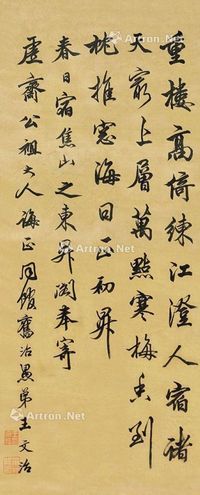 重樓高倚練江澄人宿諸
天最上層萬點寒梅香到
枕推窗海日正初昇
春日宿焦山之東昇閣奉寄
虛齋公祖大人誨正同館舊治愚弟王文治